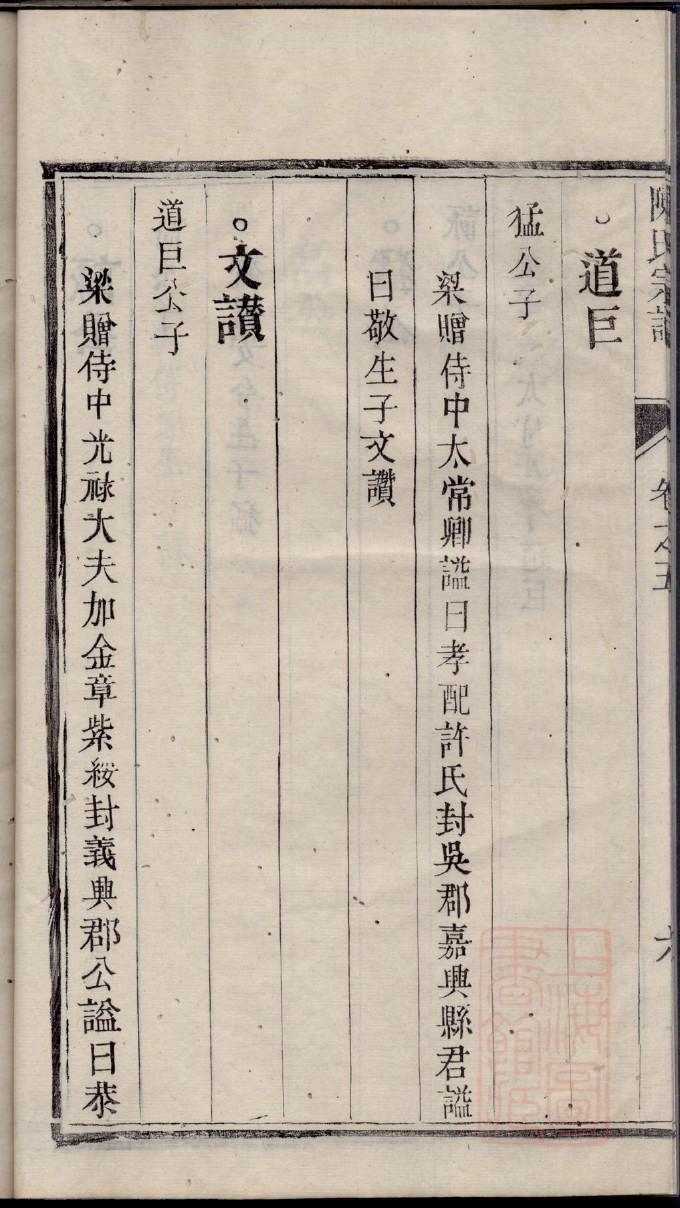 陳氏宗譜
卷之五
六
。道巨
猛公子
梁贈侍中太常卿諡曰孝配許氏封吳郡嘉興縣君諡
曰敬生子文讚
。文讃
道巨公子
。梁贈侍中光祿大夫加金章紫綬封義興郡公諡曰恭
上海圖書館印